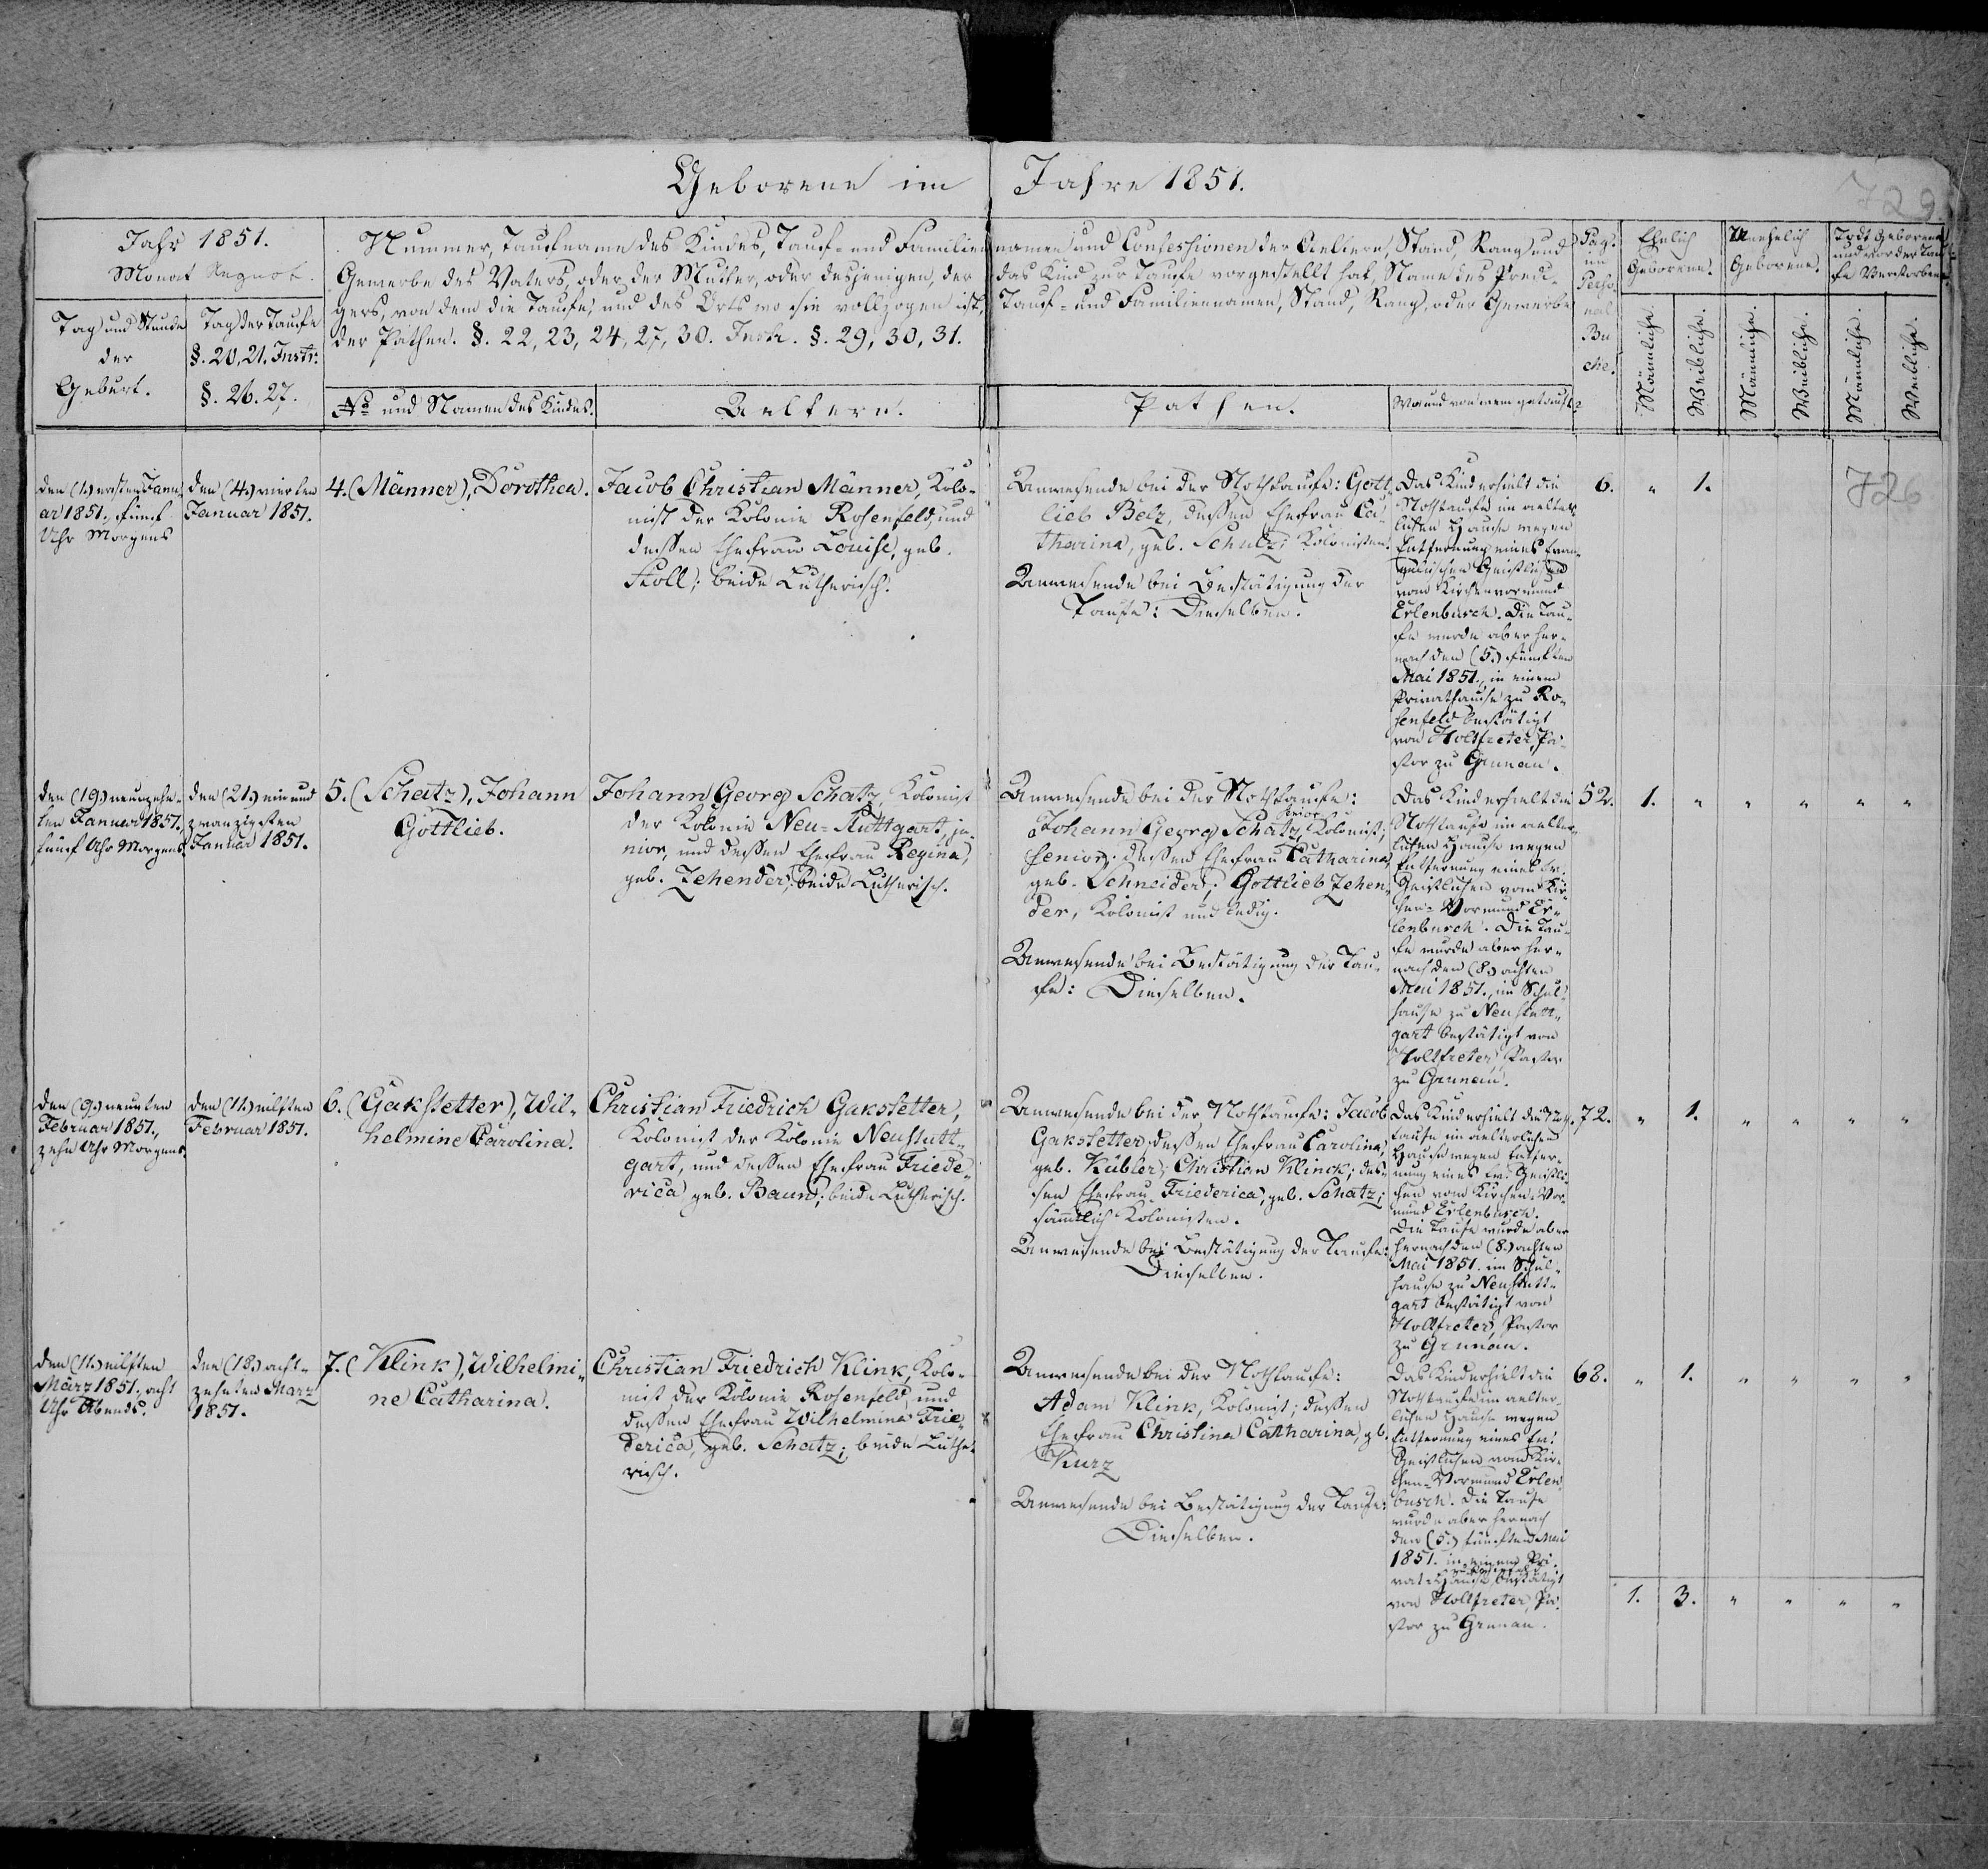 Geborene im Jahre 1851.
729
Jahr 1851.
Monat
Tag und Stunde
der
Geburt.
Tag der Taufe
§. 20, 21. Instr.
§. 26. 27.
Nummer, Taufname des Kindes, Tauf- und Familiennamen und Confessionen der Aeltern, Stand, Rang und
Gewerbe des Vaters, oder der Mutter, oder desjenigen, der das Kind zur Taufe vorgestellt hat, Name des Predi-
gers, von dem die Taufe, und des Orts wo sie vollzogen ist, Tauf- und Familiennamen, Stand, Rang, oder Gewerbe
der Pathen. §. 22, 23, 24, 27, 30. Instr. §. 29, 30, 31.
No und Namen des Kindes.
Aeltern.
Pathen.
Wo und von wem getauft
Pag.
im
Perso-
nal
Bu
che.
Ehelich
Geborene.
Unehelich
Geborene.
Todt Geborene
und vor der Tau-
fe Verstorbene
Männliche.
Weibliche.
Männliche.
Weibliche.
Männliche.
Weibliche.
den (1.) ersten Janu-
ar 1851., fünf
Uhr Morgens
den (4.) vierten
Januar 1851.
4. (Männer), Dorothea.
Jacob Christian Männer, Kolo-
nist der Kolonie Rosenfeld, und
dessen Ehefrau Louise, geb.
Stoll; beide Lutherisch.
Anwesende bei der Nothtaufe: Gott-
lieb Belz, dessen Ehefrau Ca-
tharina, geb. Schulz; Kolonisten.
Anwesende bei Bestätigung der
Taufe: Dieselben.
Das Kind erhielt die
Nothtaufe im aelter-
lichen Hause wegen
Entfernung eines Evan-
gelischen Geistlichen
vom Kirchenvormund
Erlenbusch. Die Tau-
fe wurde aber her-
nach den (5.) fünften
Mai 1851., in einem
Privathause zu Ro-
senfeld bestätigt
von Holtfreter, Pa-
stor zu Grunau.
6. " 1.
726
den (19.) neunzehn-
ten Januar 1851.
fünf Uhr Morgens.
den (21.) ein und
zwanzigsten
Januar 1851.
5. (Schatz), Johann
Gottlieb.
Johann Georg Schatz, Kolonist
der Kolonie Neu-Stuttgart, ju-
nior, und dessen Ehefrau Regina,
geb. Zehender; beide Lutherisch.
Anwesende bei der Nothtaufe:
Johann Georg Schatz, Kolonist;
senior; dessen Ehefrau Catharina,
geb. Schneider; Gottlieb Zehen-
der, Kolonist und ledig.
Anwesende bei Bestätigung der Tau-
fe: Dieselben.
Das Kind erhielt die
Nothtaufe im aelter-
lichen Hause wegen
Entfernung eines Ev.
Geistlichen vom Kir-
chen-Vormund Er-
lenbusch. Die Tau-
fe wurde aber her-
nach den (8.) achten
Mai 1851., im Schul-
hause zu Neustutt-
gart bestätigt von
Holtfreter, Pastor
zu Grunau.
52. 1. " " " " "
den (9.) neunten
Februar 1851.,
zehn Uhr Morgens.
den (11.) eilften
Februar 1851.
6. (Gakstetter), Wil-
helmine Carolina.
Christian Friedrich Gakstetter,
Kolonist der Kolonie Neustutt-
gart, und dessen Ehefrau Friede-
rica geb. Baun; beide Lutherisch.
Anwesende bei der Nothtaufe: Jacob
Gakstetter, dessen Ehefrau Carolina,
geb. Kübler; Christian Klinck; des-
sen Ehefrau Friederica, geb. Schatz;
sämmtlich Kolonisten.
Anwesende bei Bestätigung der Taufe:
Dieselben.
Das Kind erhielt die Noth-
taufe im aelterlichen
Hause wegen Entfer-
nung eines Ev. Geistli-
chen vom Kirchen-Vor-
mund Erlenbusch.
Die Taufe wurde aber
hernach den (8.) achten
Mai 1851. im Schul-
hause zu Neustutt-
gart bestätigt von
Holtfreter, Pastor
zu Grunau.
72. " 1. " " " "
den (11.) eilften
März 1851., acht
Uhr Abends.
den (18.) acht-
zehnten März
1851.
7. (Klink), Wilhelmi-
ne Catharina.
Christian Friedrich Klink, Kolo-
nist der Kolonie Rosenfeld, und
dessen Ehefrau Wilhelmina Frie-
derica, geb. Schatz; beide Luthe-
risch.
Anwesende bei der Nothtaufe:
Adam Klink, Kolonist; dessen
Ehefrau Christina Catharina, gb.
Kurz
Anwesende bei Bestätigung der Taufe:
Dieselben.
Das Kind erhielt die
Nothtaufe im aelter-
lichen Hause wegen
Entfernung eines Ev.
Geistlichen vom Kir-
chen-Vormund Erlen-
busch. Die Taufe
wurde aber hernach
den (5.) fünften Mai
1851. in einem Pri-
vat-Hause bestätigt
von Holtfreter, Pa-
stor zu Grunau.
68. " 1. " " " "
1. 3. " " " "